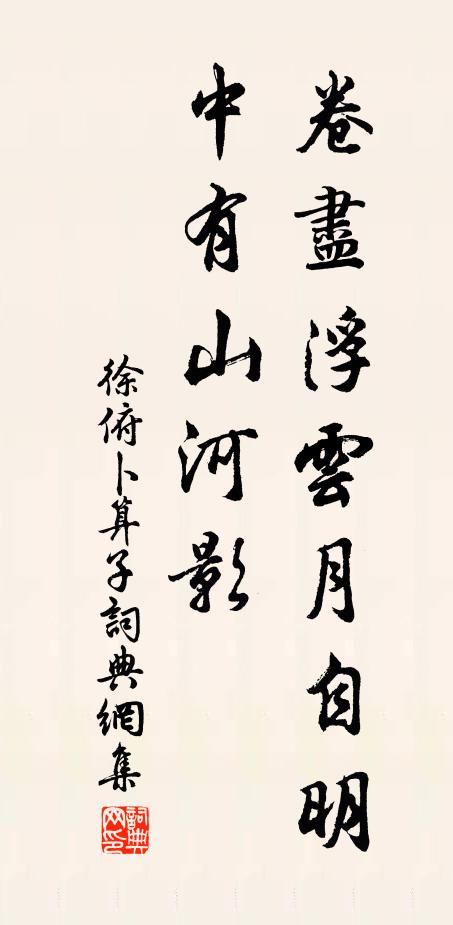 卷盡浮雲月自明
中有山河影
徐俯卜算子詞典網集
詞典網印